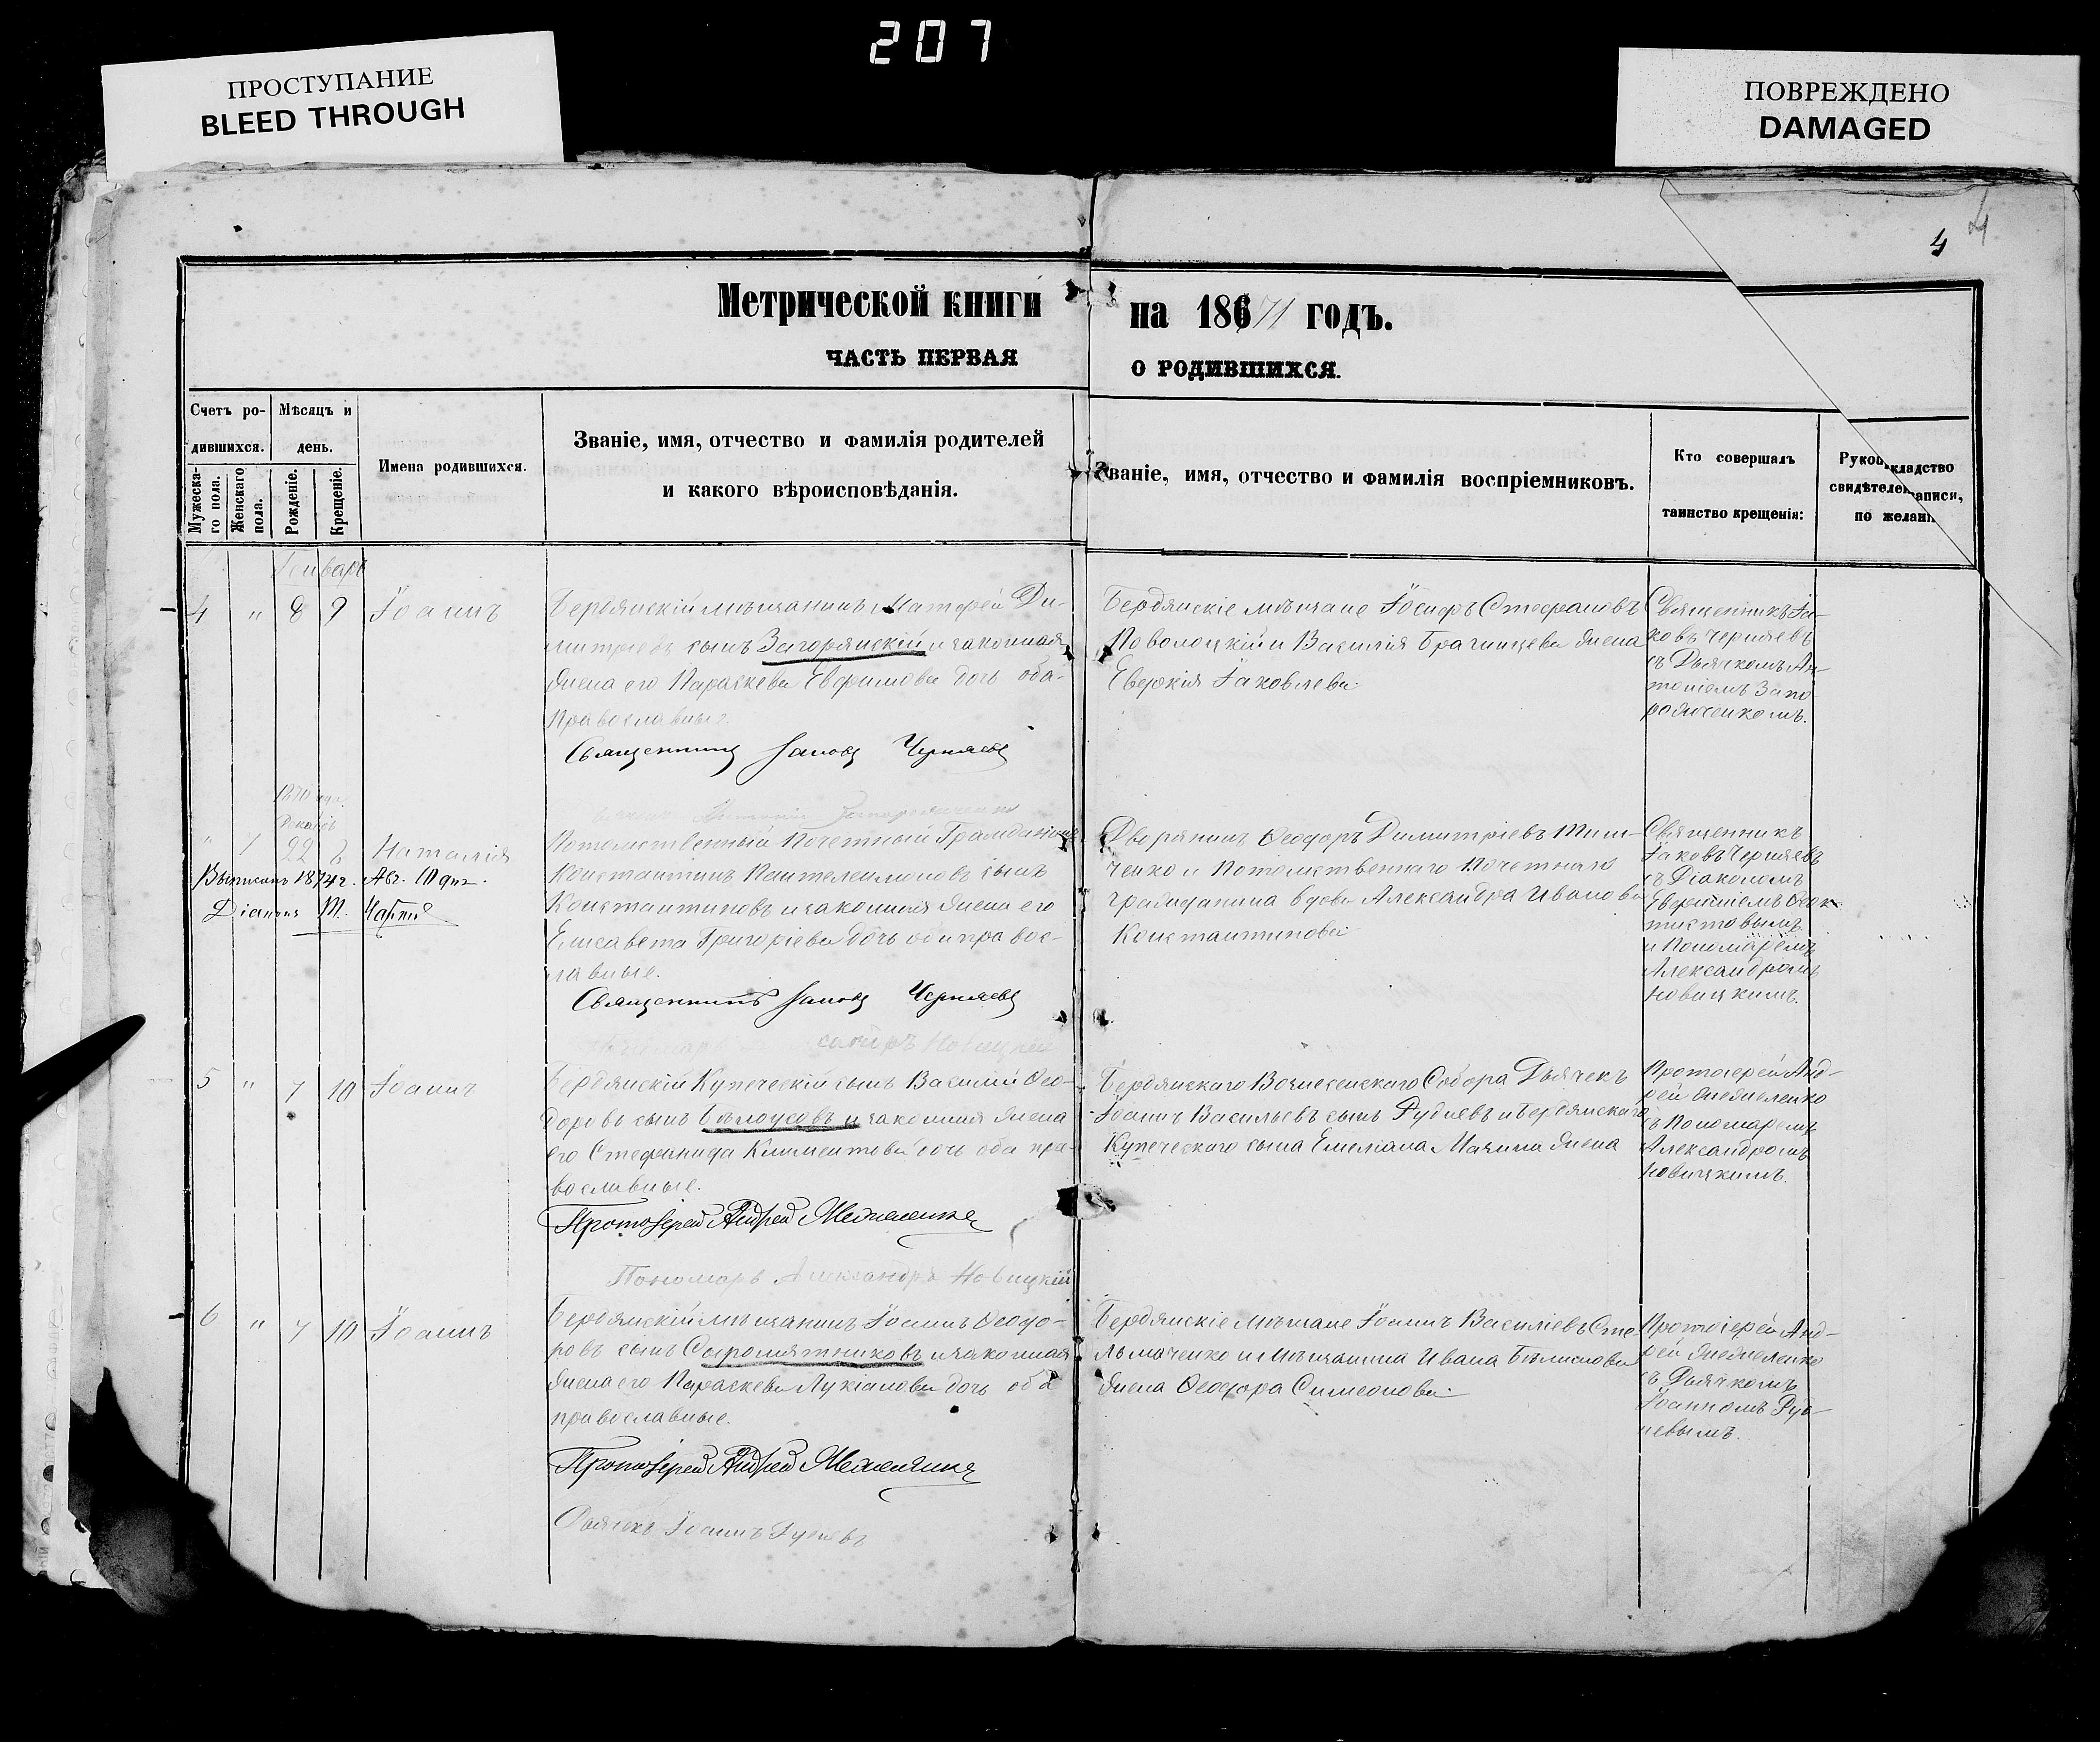 207
ПРОСТУПАНИЕ
BLEED THROUGH
ПОВРЕЖДЕНО
DAMAGED
4
4
Метрической книги на 18671 годъ.
ЧАСТЬ ПЕРВАЯ О РОДИВШИХСЯ.
Счетъ ро-
дившихся.
Мужеска-
го пола.
Женскаго
пола.
Мѣсяцъ и
день.
Рожденіе.
Крещеніе.
Имена родившихся.
Званіе, имя, отчество и фамилія родителей
и какого вѣроисповѣданія.
Званіе, имя, отчество и фамилія воспріемниковъ.
Кто совершалъ
таинство крещенія:
Рукоп кладство
свидѣтеле аписи,
по желан
Январь
4 " 8 9 Іоаннъ
Бердянскій мѣщанинъ Матфей Ди-
митріевъ сынъ Загорянскій и законная
жена его Параскева Евфимова дочь оба
Православные.
Священникъ Іаковъ Черняевъ
Бердянскіе мѣщане Іосифъ Стефановъ
Поволоцкій и Василія Брагинцева жена
Евдокія Іаковлева
Священникъ Іа-
ковъ Черняевъ
съ Дьячкомъ Ан-
тоніемъ Запо
рожченкомъ.
1870 года
Декабрь
" 1 22 Наталія
Выписано 1874 г. Авг. 10 дня.
Діаконъ
Потомственный Почетный Гражданинъ
Константинъ Пантелеимоновъ сынъ
Константиновъ и законная жена его
Елисавета Григоріева дочь оба правос-
лавные.
Священникъ Іаковъ Черняевъ
Новицкій
Дворянинъ Феодоръ Димитріевъ Тим-
ченко и Потомственнаго Почетнаго
гражданина вдова Александра Иванова
Константинова
Священникъ
Іаковъ Черняевъ
съ Діакономъ
Евфиміемъ Феок-
тистовымъ
и Пономаремъ
Александромъ
Новицкимъ.
5 " 7 10 Іоаннъ
Бердянскій Купеческій сынъ Василій Фео-
доровъ сынъ Бѣлоусовъ и законная жена
его Стефанида Климентова дочь оба пра-
вославные.
Протоіерей Андрей
Пономарь Александръ Новицкій
Бердянскаго Вознесенскаго Собора Дьячекъ
Іоаннъ Васильевъ сынъ Рудневъ и Бердянскаго
Купеческаго сына Емеліана Мазина жена
Протоіерей Анд-
рей
съ Пономаремъ
Александромъ
Новицкимъ.
6 " 7 10 Іоаннъ
Бердянскій мѣщанинъ Іоаннъ Феодо-
ровъ сынъ Сыромятниковъ и законная
жена его Параскева Лукіанова дочь оба
православные.
Протоіерей Андрей
Дьячекъ Іоаннъ Рудневъ
Бердянскіе мѣщане Іоаннъ Василіевъ Сте
льмаченко и мѣщанина Ивана
жена Феодора Симеонова
Протоіерей Анд-
рей
съ Дьячкомъ
Іоанномъ Руд-
невымъ.